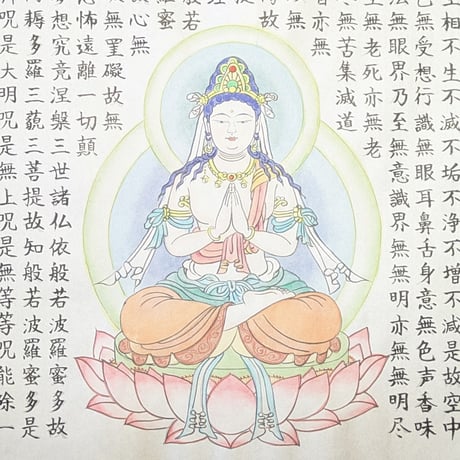 空相不生不滅不垢不浄不増不減是故空中
色無受想行識無眼耳鼻舌身意無色声香味
法無眼界乃至無意識界無無明亦無無明尽
至無老死亦無老
尽無苦集滅道
智亦無
得故
般若
羅蜜
故心無
無罣礙故無
恐怖遠離一切顛
夢想究竟涅槃三世諸仏依般若波羅蜜多故
耨多羅三藐三菩提故知般若波羅蜜多是
神呪是大明呪是無上呪是無等等呪能除一